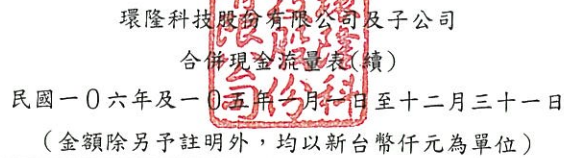 環隆科技股份有限公司及子公司
合併現金流量表(續)
民國一0六年及一0五年一月一日至十二月三十一日
(金額除另予註明外，均以新台幣仟元為單位)